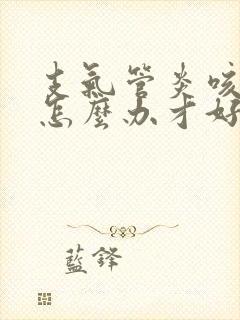 支氣管炎咳
怎麼办才好
藍鋒